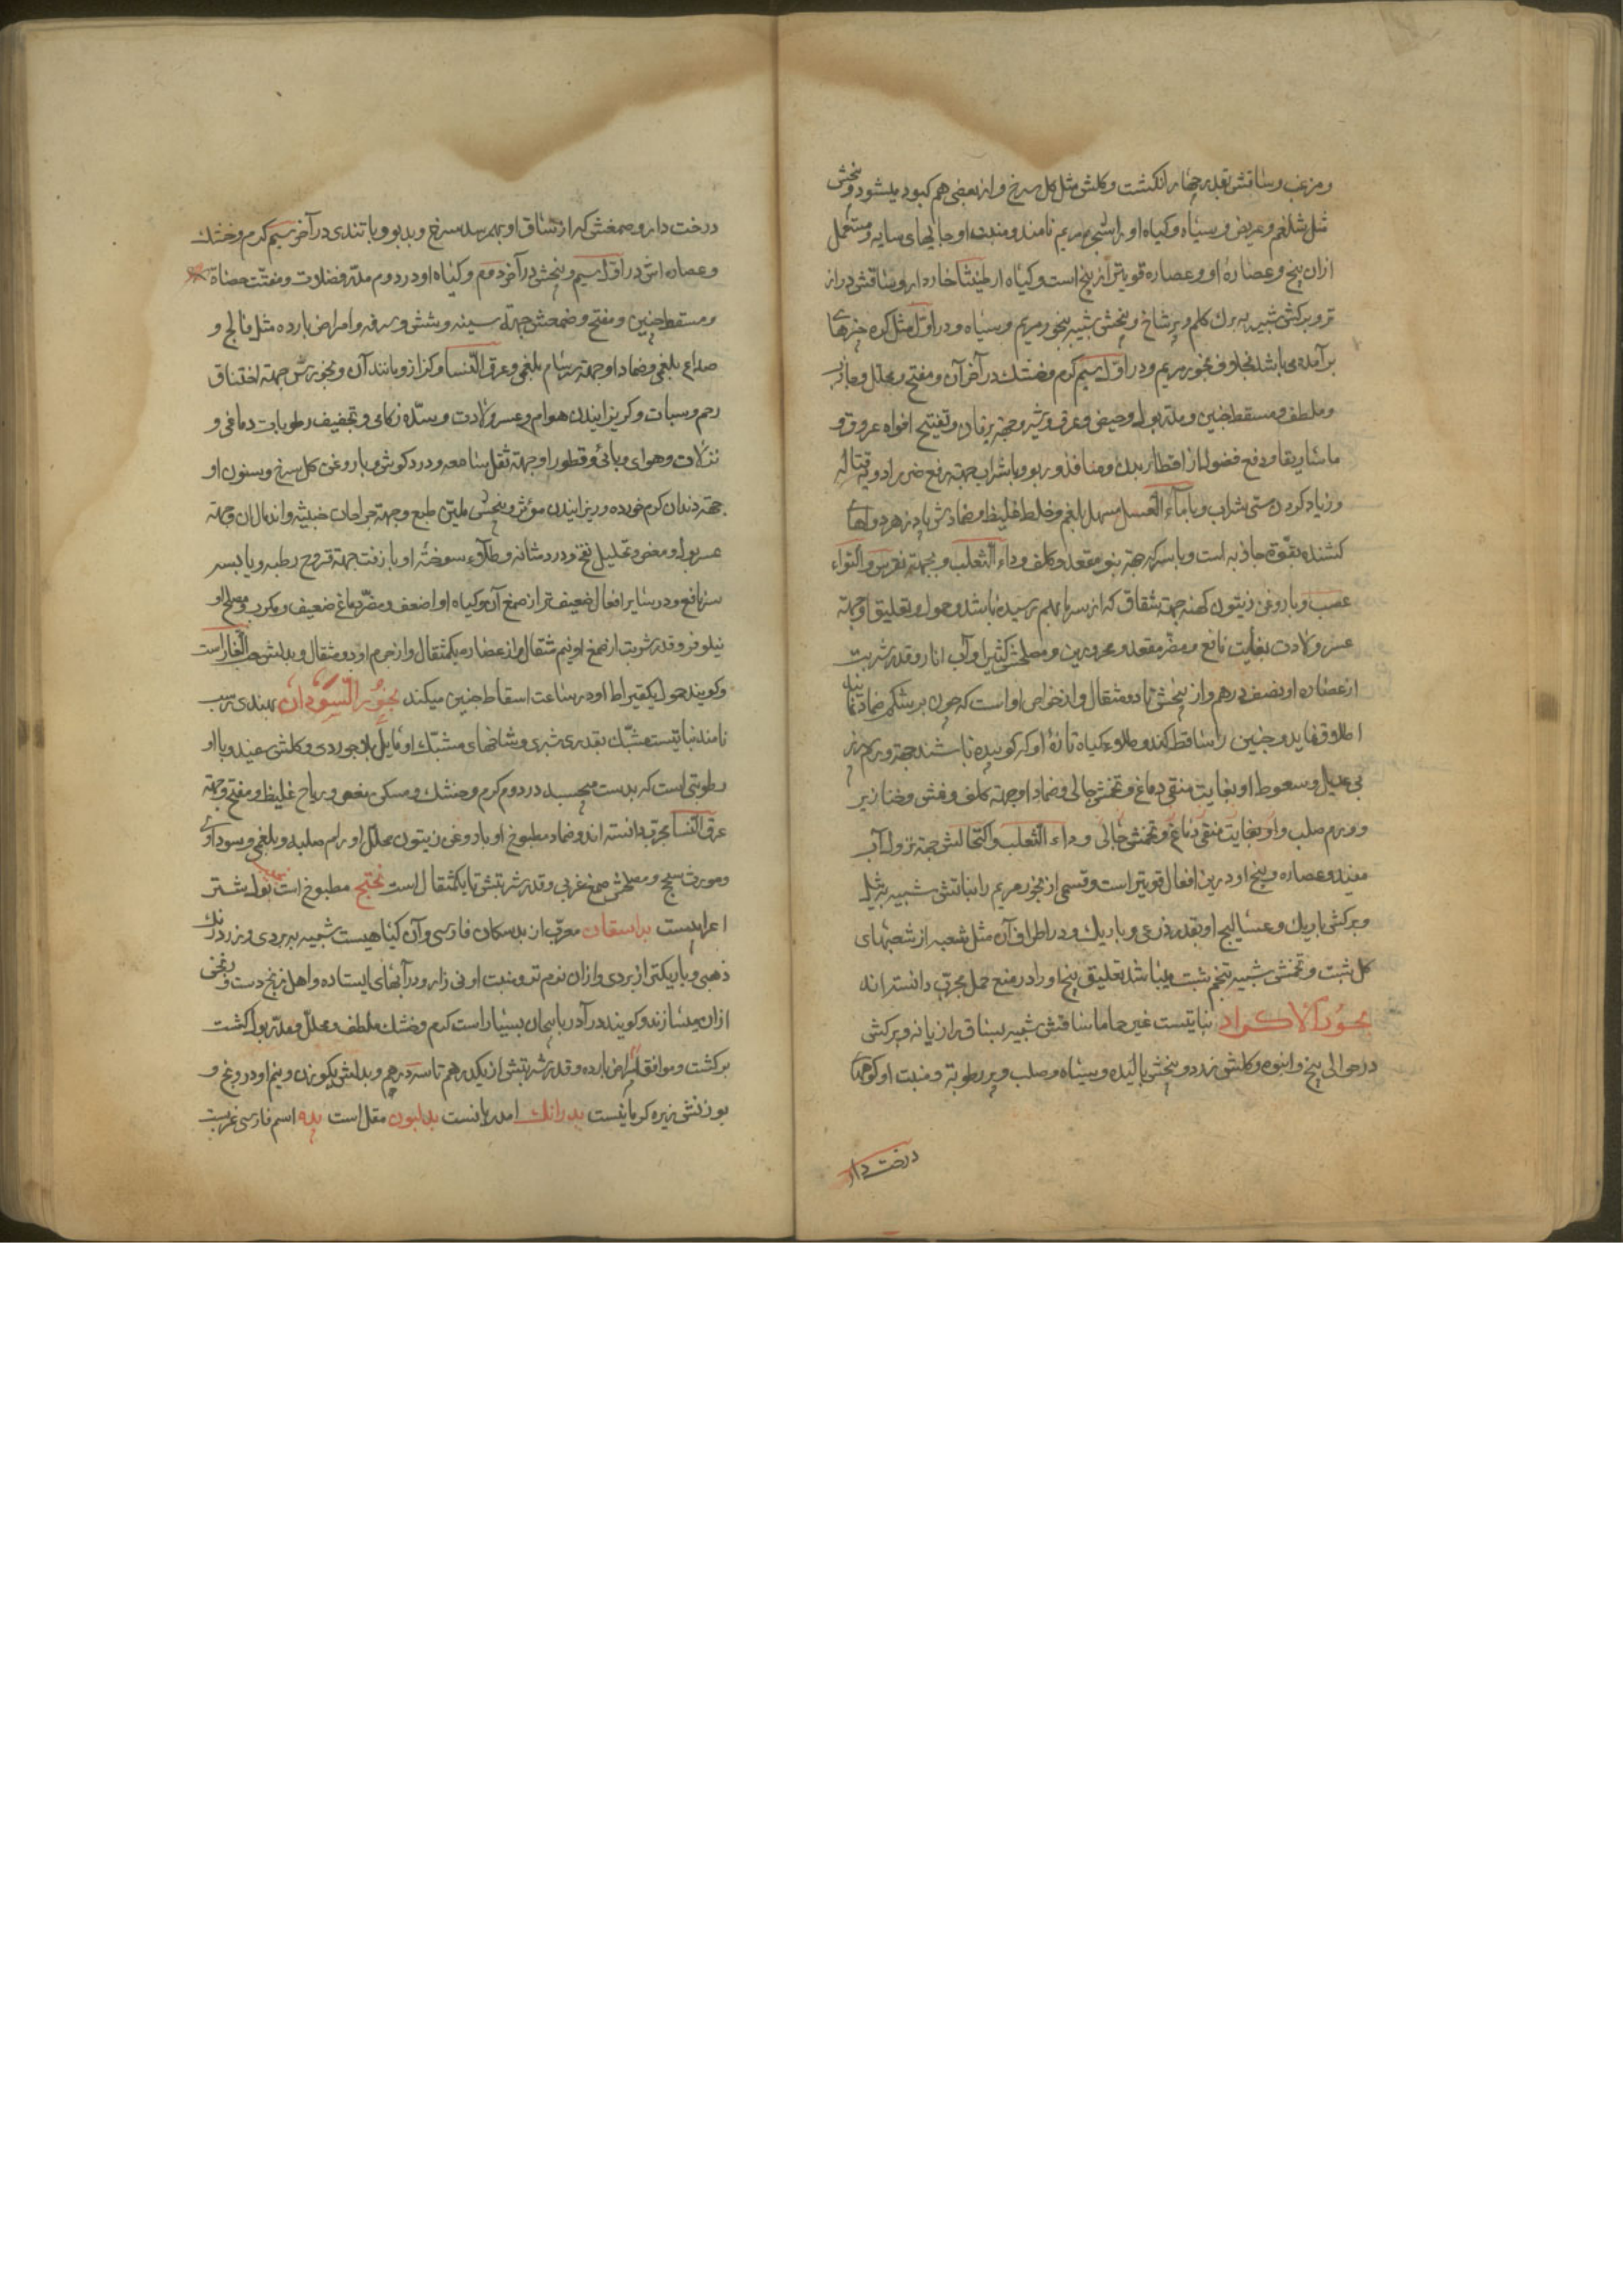 و مزغب و ساقش بقدر چهار انکشت و کلش مثل کل سرخ و از بعضی هم کبود میشود و بیخش
مثل شلغم و عریض و سیاه و کیاه او را شجره مریم نامند و منبت او جایهای سایه و مستعمل
ازان بیخ و عصاره او و عصاره قویتر از بیخ است و کیاه ارطنیثا خاردار و ساقش دراز
تر و برکش شبیه ببرك کلم و پرشاخ و بیخش شبیه ببخور مریم و سیاه و در اول مثل کره چیزهای
برآمده می باشد بخلاف بخور مریم و در اول سیم کرم و خشك در آخر آن و مفتح و محلل و جاذب
و ملطف و مسقط جنین و مدر بول و حیض و عرق و شیر و جهة یرقان و تفتیح افواه عروق و
ماساریقا و دفع فضول از اقطار بدن و منافذ و ربو و با شراب جهة رفع ضرر ادویه قتاله
و زیاد کردن مستی شراب و با ماء العسل مسهل بلغم و خلط غلیظ و ضمادش پادزهر دواهای
کشنده بقوة جاذبه است و با سرکه جهة نتو مقعد و کلف و داء الثعلب و جهة نقرس و التواء
عصب و با روغن زیتون کهنه جهة شقاق که از سرما بهم رسیده باشد و حمول و تعلیق او جهة
عسر ولادت بغایت نافع و مضر مقعد و محرورین و مصلحش کتیرا و آب انار و قدر شربت
از عصاره او نصف درهم و از بیخش تا دو مثقال و از خواص او است که چون بر شکم ضماد نمایند
اطلاق نماید و جنین را ساقط کند و طلاء کیاه تازه او که کوبیده باشند جهة ورم سپرز
بی عدیل و سعوط او بغایت منقی دماغ و تخمش جالی و ضماد او جهة کلف و نمش و خنازیر
و ورم صلب و او بغایت منقی دماغ و تخمش جالی و داء الثعلب و اکتحالش جهة نزول آب
مفید و عصاره و بیخ او درین افعال قویتر است و قسمی از بخور مریم را نباتش شبیه بثیل
و برکش باریك و عسالیج او بقدر ذرعی و باریك و در اطراف آن مثل شعبه از شعبهای
کل شبت و تخمش شبیه بتخم شبت میباشد تعلیق بیخ او را در منع حمل مجرب دانسته اند
بخور الاکراد نباتیست غیر حاما ساقش شبیه بساق رازیانه و برکش
در حوالی بیخ و انبوه و کلش زرد و بیخش بالیده و سیاه و صلب و پر رطوبة و منبت او کوهها
درخت دار
درخت دار و صمغش که از ساق او بهم رسد سرخ و بدبو و با تندی در آخر سیم کرم و خشك
و عصاره اش در اول سیم و بیخش در آخر دوم و کیاه او در دوم مدر فضلات و مفتت حصاة
و مسقط جنین و مفتح و ضمغش جهة سینه و شش و سرفه و امراض بارده مثل فالج و
صداع بلغمی و ضماد او جهة سرسام بلغمی و عرق النسا و کزاز و مانند آن و بخورش جهة اختناق
رحم و سبات و کریزانیدن هوام و عسر ولادت و سده زکامی و تجفیف رطوبات دماغی و
نزلات و هوای وبائی و قطور او جهة ثقل سامعه و درد کوش و با روغن کل سرخ و سنون او
جهة دندان کرم خورده و ریزانیدن موثر و بیخش ملین طبع و جهة جراحات خبیثه و اندمال آن و جهة
عسر بول و مغص و تحلیل نفخ و درد مثانه و طلاء سوخته او با زفت جهة قروح رطبه و یابسه
سر نافع و در سایر افعال ضعیف تر از صمغ آن و کیاه او اضعف و مضر دماغ ضعیف و مکرب و مصلح او
نیلوفر و قدر شربت از صمغ او نیم مثقال و از عصاره یکمثقال و از جرم او دو مثقال و بدلش حب الغار است
و کویند حمول یکقیراط او در ساعت اسقاط جنین میکند بخور السودان بهندی ترب
نامند نباتیست مشبك بقدر شبری و شاخهای مشبك او مایل بلاجوردی و کلش سفید و با او
رطوبتی است که بدست میچسبد در دوم کرم و خشك و مسکن مغص و ریاح غلیظ و مفتح و جهة
عرق النسا مجرب دانسته اند و ضماد مطبوخ او با روغن زیتون محلل اورام صلبه و بلغمی و سوداوی
و مورث سحج و مصلحش صمغ عربی و قدر شربتش تا یکمثقال است بختج مطبوخ است بول شتر
اعرابیست براسقان معرب از بدسکان فارسی و آن کیاهیست شبیه ببردی و زرد رنك
ذهبی و باریکتر از بردی و ازان نرم تر و منبت او نی زار و در آبهای ایستاده و اهل زنج دست و رنجن
ازان میسازند و کویند در آذربایجان بسیار است کرم و خشك ملطف و محلل و مدر بول کشت
برکشت و موافق امراض بارده و قدر شربتش از یکدرهم تا سه درهم و بدلش یکوزن و نیم او دروغ و
بوزنش زیره کرمانیست بدرانك امدریانست بدلیون مقل است بده اسم فارسی غربست